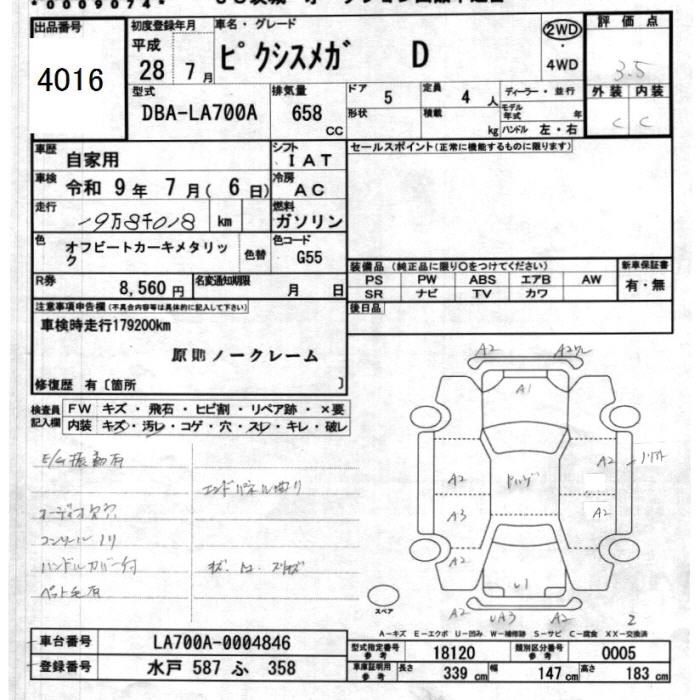 *0009074*
出品番号 4016
初度登録年月 平成 28年 7月
車名・グレード ピクシスメガ D
2WD ・ 4WD
評価点 3.5
型式 DBA-LA700A
排気量 658 CC
ドア 5
形状
定員 4人
積載 kg
ディーラー・並行
モデル年式 年
ハンドル 左・右
外装 内装
C C
車歴 自家用
シフト IAT
セールスポイント(正常に機能するものに限ります)
車検 令和 9年 7月( 6日)
冷房 AC
走行 km
燃料 ガソリン
色 オフビートカーキメタリック
色替
色コード G55
装備品 (純正品に限り○をつけてください)
新車保証書
PS PW ABS エアB AW
有・無
SR ナビ TV カワ
R券 8,560円
名変通知期限 月 日
後日品
注意事項申告欄(不具合内容等は具体的に記入して下さい)
車検時走行179200km
原則ノークレーム
修復歴 有〔箇所 〕
検査員記入欄
FW キズ・飛石・ヒビ割・リペア跡・×要
内装 キズ・汚レ・コゲ・穴・スレ・キレ・破レ
E/G振動有
エンドパネル曲り
コンソールノリ
ハンドルカバー付
ペット毛有
A2
A1
A2
A2
A3
A2
A2
A2
U1
A2 UA3 A2
2
スペア
A-キズ E-エクボ U-凹み W-補修跡 S-サビ C-腐食 XX-交換済
車台番号 LA700A-0004846
登録番号 水戸 587 ふ 358
型式指定番号 参考 18120
類別区分番号 参考 0005
車庫証明用 参考 長さ 339 cm 幅 147 cm 高さ 183 cm